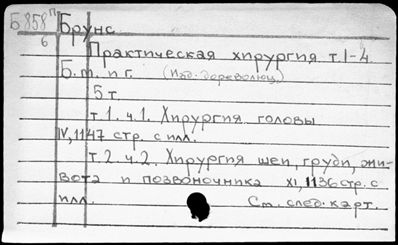 Б858п Брунс.
6
Практическая хирургия т.1-4
Б.м. и г. (Изд. дореволюц.)
5 т.
т.1. ч.1. Хирургия головы
IV, 1147 стр. с илл.
т.2 ч.2. Хирургия шеи, груди, жи-
вота и позвоночника XI, 1136 стр. с
илл. См. след. карт.